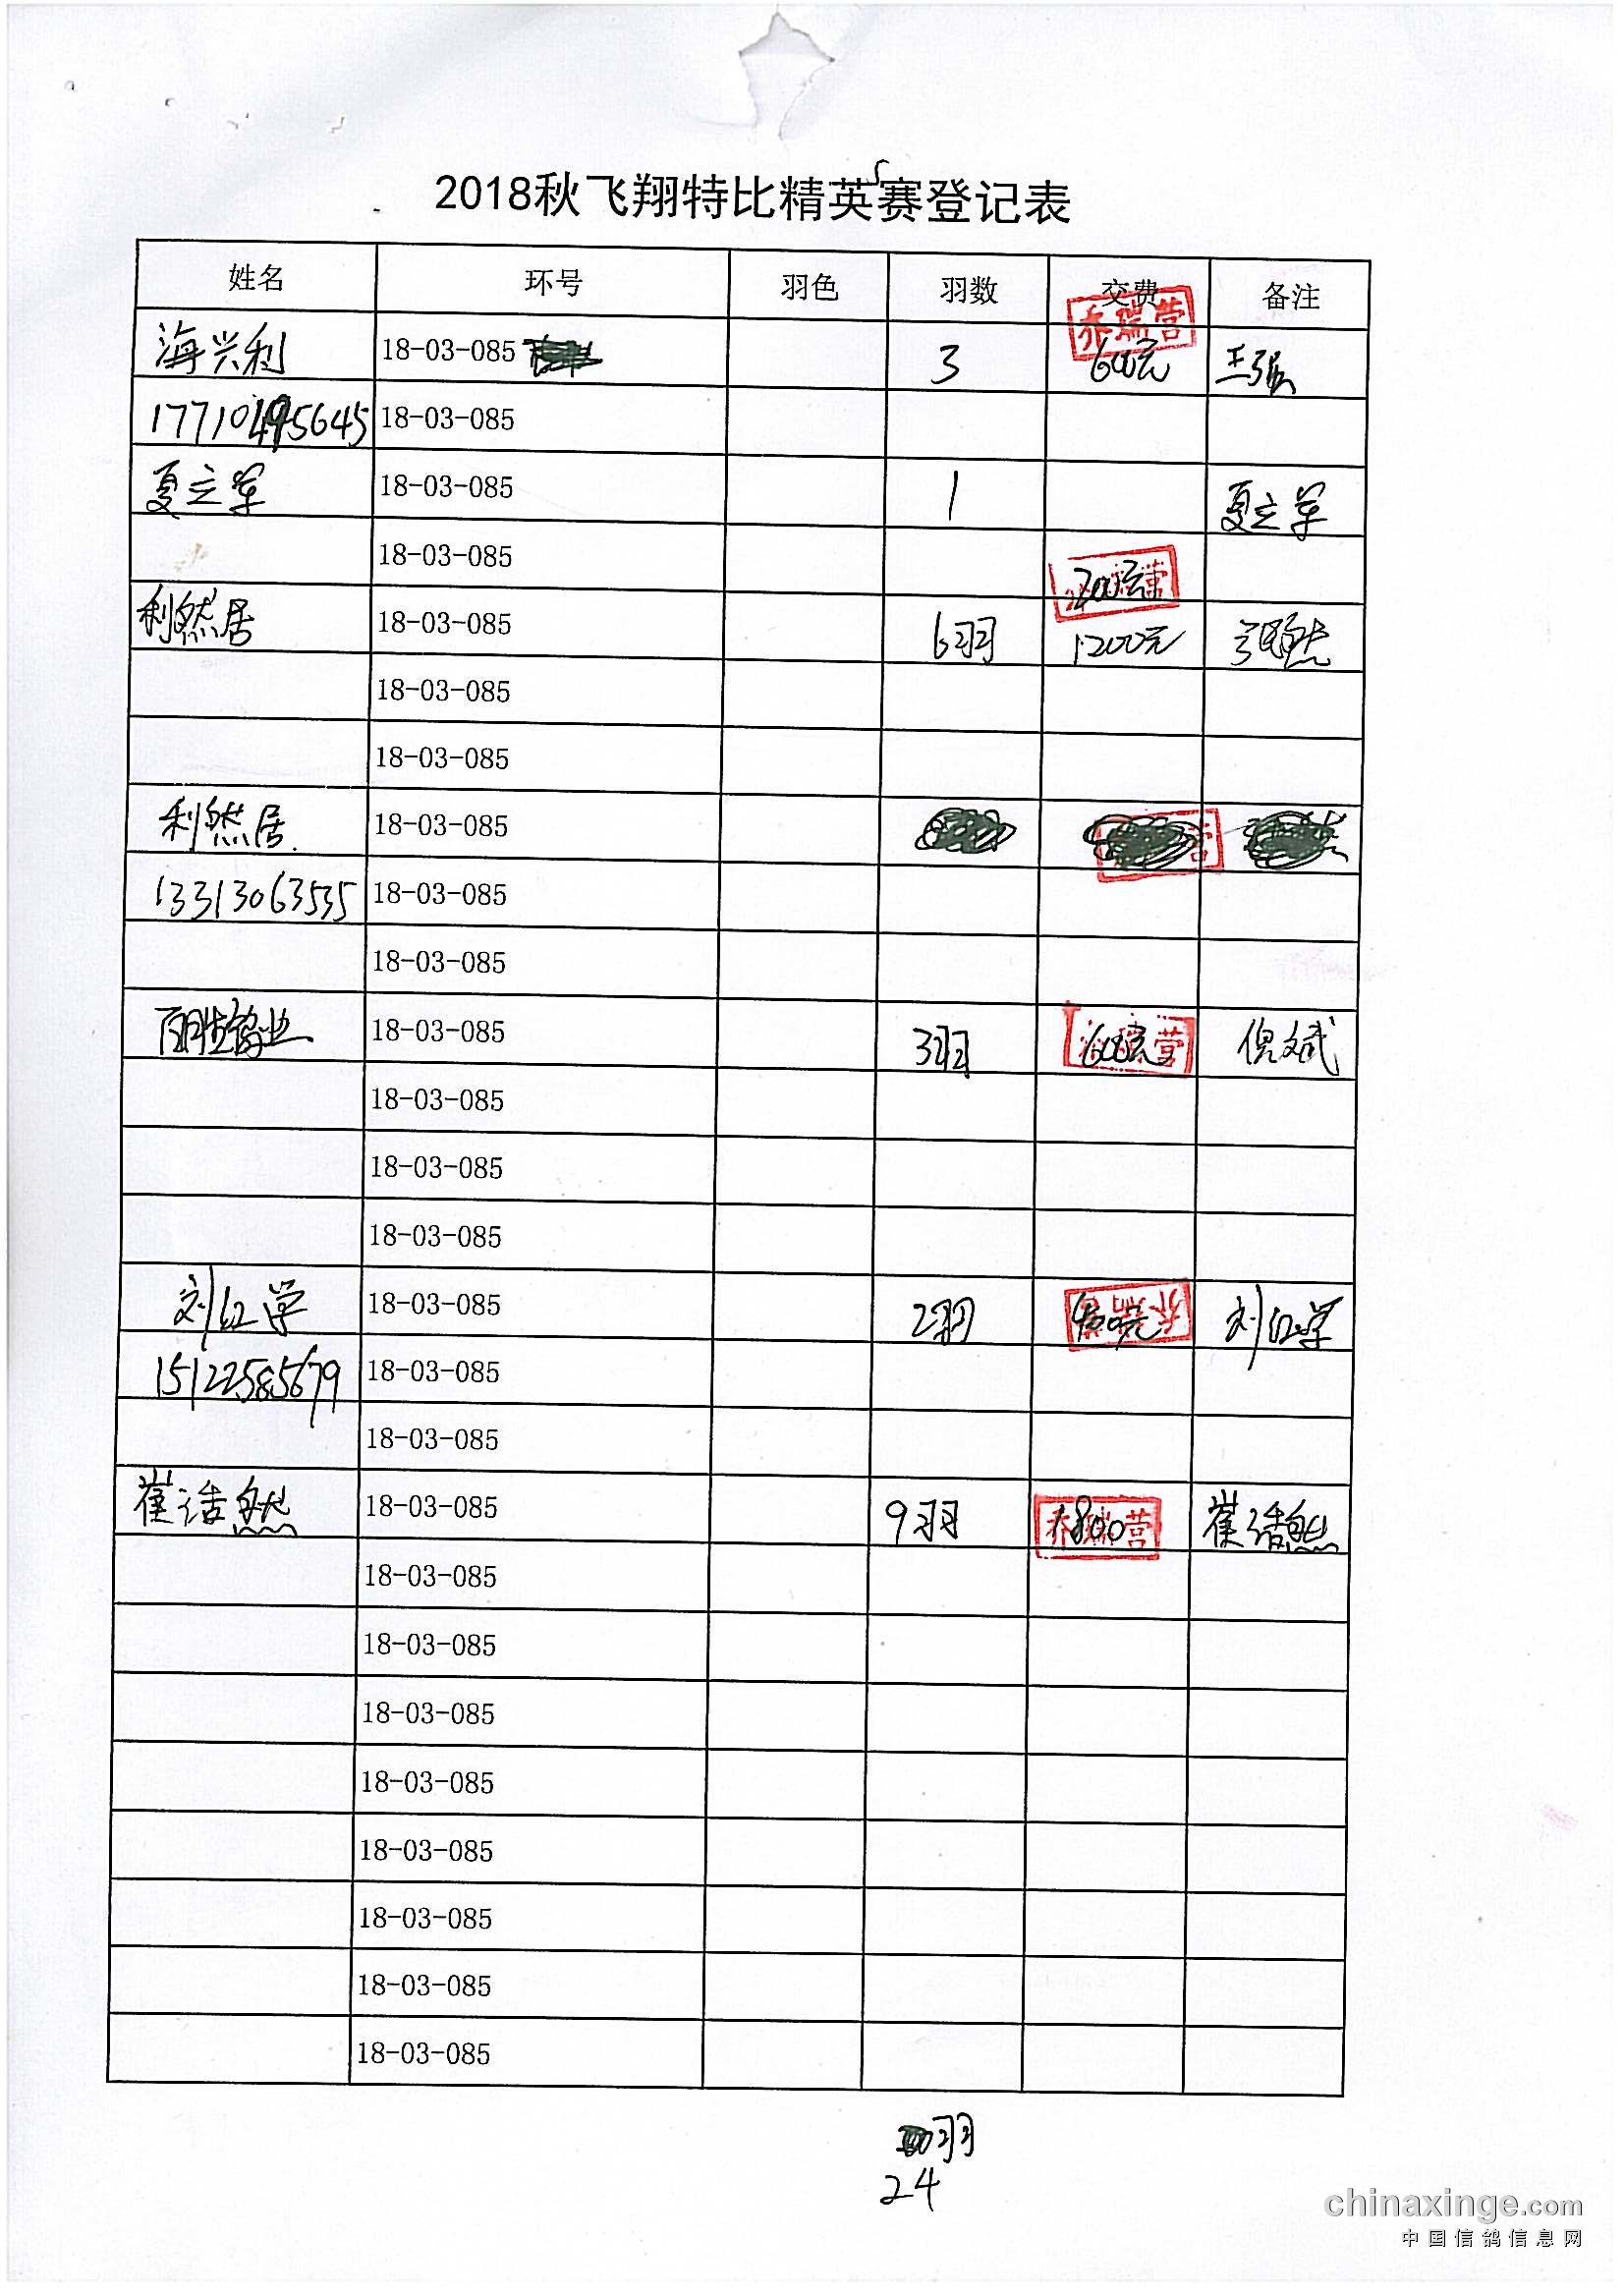 2018秋飞翔特比精英赛登记表
姓名 环号 羽色 羽数 交费 备注
海兴利 18-03-085 3 乔瑞营 600元 王强
17710495645 18-03-085
夏立军 18-03-085 1 夏立军
18-03-085 200元 营
利然居 18-03-085 6羽 1200元
18-03-085
18-03-085
利然居. 18-03-085 营
13313063535 18-03-085
18-03-085
18-03-085 3羽 600元 营 倪文斌
18-03-085
18-03-085
18-03-085
刘红学 18-03-085 2羽 400元 乔瑞营 刘红学
15122585679 18-03-085
18-03-085
崔浩然 18-03-085 9羽 1800 乔瑞营 崔浩然
18-03-085
18-03-085
18-03-085
18-03-085
18-03-085
18-03-085
18-03-085
18-03-085
羽
24
chinaxinge.com
中国信鸽信息网